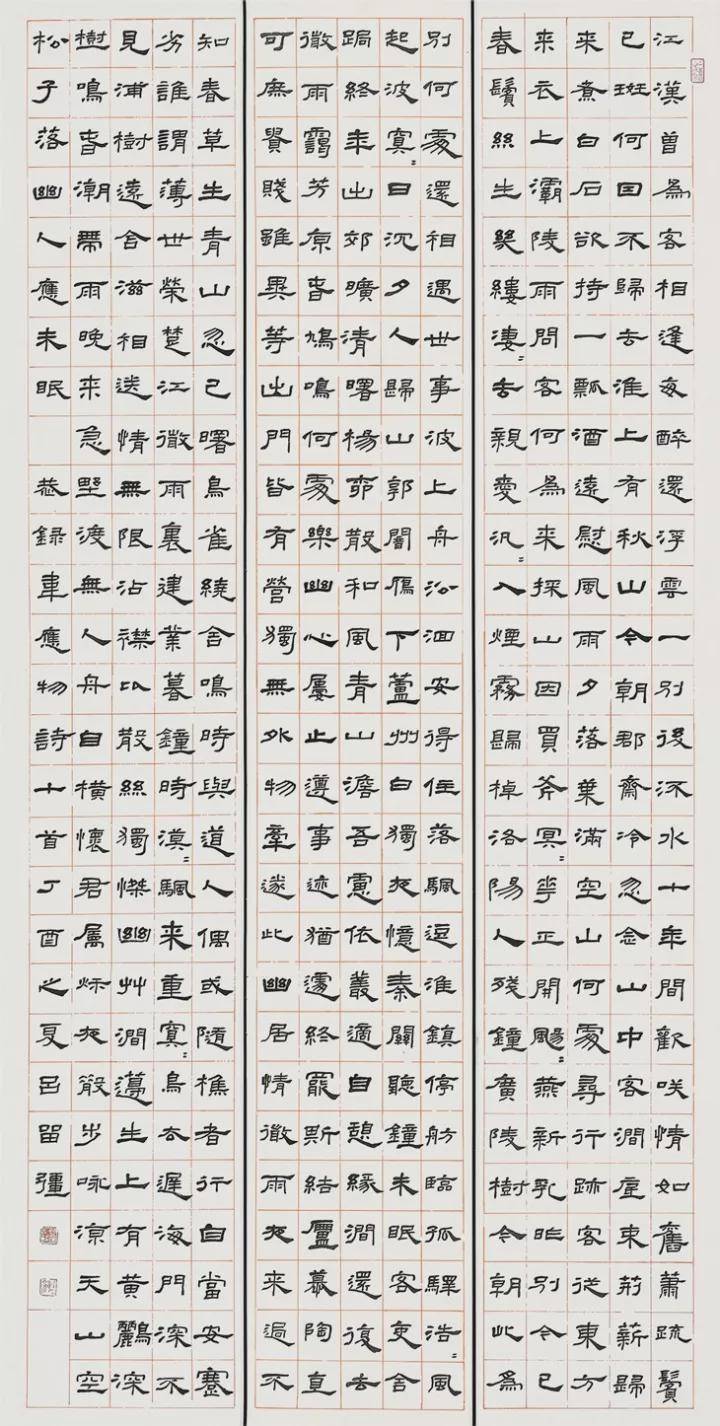 江漢曾為客相逢每醉還浮雲一別後流水十年間歡咲情如舊蕭疏鬢
已斑何因不歸去淮上有秋山今朝郡齋冷忽念山中客澗底束荊薪歸
来煮白石欲持一瓢酒遠慰風雨夕落葉滿空山何處尋行跡客從東方
来衣上灞陵雨問客何為来採山因買斧冥〃花正開颺〃燕新乳昨別今已
春鬢絲生幾縷凄〃去親愛汎〃入煙霧歸棹洛陽人殘鐘廣陵樹今朝此為
別何處還相遇世事波上舟沿洄安得住落颿逗淮鎮停舫臨孤驛浩〃風
起波冥〃日沉夕人歸山郭闇鴈下蘆洲白獨夜憶秦關聽鐘未眠客吏舍
跼終年出郊曠清曙楊柳散和風青山澹吾慮依叢適自憩緣澗還復去
微雨靄芳原春鳩鳴何處樂幽心屢止遵事迹猶遽終罷斯結廬慕陶直
可庶貴賤雖異等出門皆有營獨無外物牽遂此幽居情微雨夜来過不
知春草生青山忽已曙鳥雀繞舍鳴時與道人偶或隨樵者行自當安蹇
劣誰謂薄世榮楚江微雨裏建業暮鐘時漠〃颿来重冥〃鳥去遲海門深不
見浦樹遠含滋相送情無限沾襟比散絲獨憐幽艸澗邊生上有黃鸝深
樹鳴春潮帶雨晚来急野渡無人舟自橫懷君屬秋夜散步咏涼天山空
松子落幽人應未眠 恭録韋應物詩十首丁酉之夏呂留彊